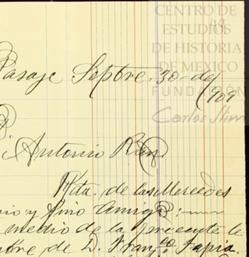 CENTRO DE
ESTUDIOS
DE HISTORIA
DE MEXICO
FUNDACIÓN
Carlos Slim
Pasaje Septre. 30 de
1909
Antonio
Rita. de las Mercedes
y fino Amigo:
medio de la presente le
de D. Franco. Tapia.